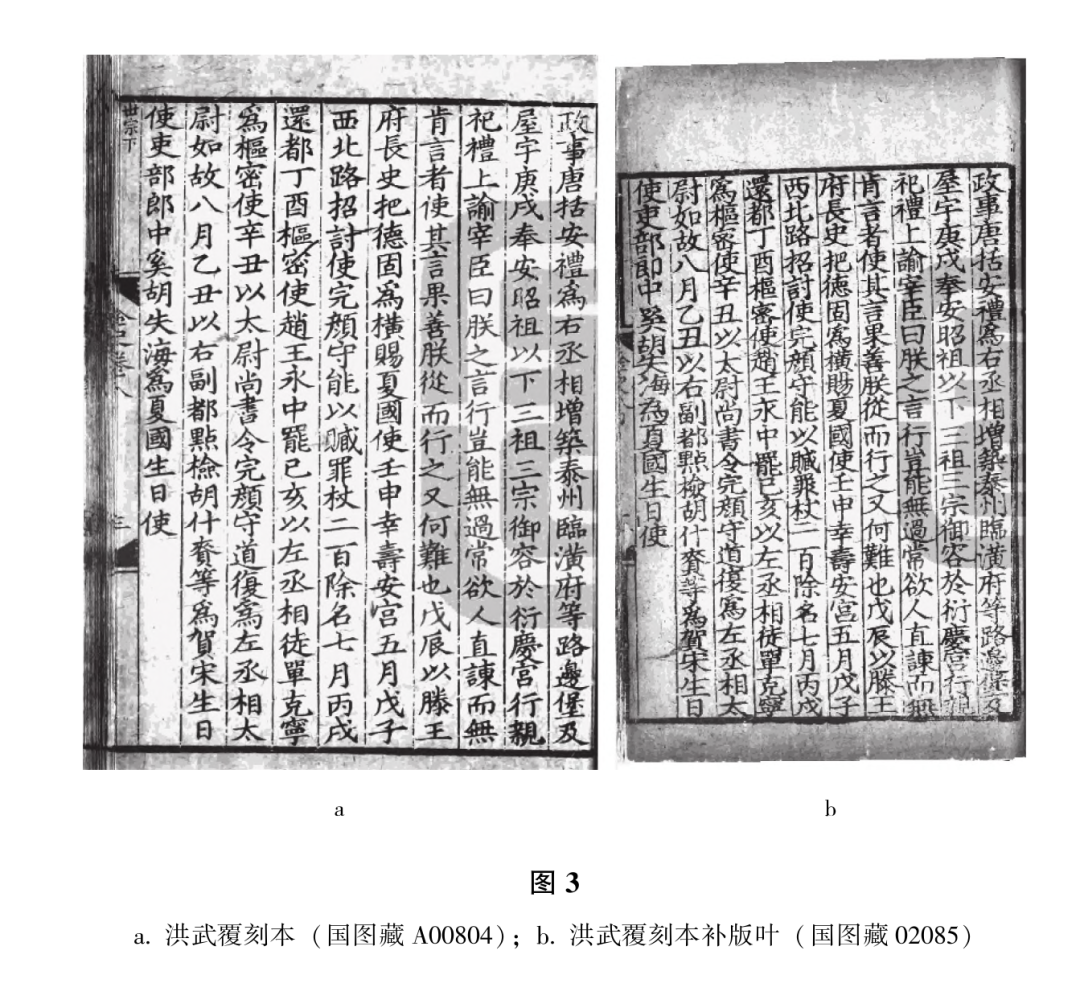 政事唐括安禮爲右丞相增築泰州臨潢府等路邊堡及
屋宇庚戌奉安昭祖以下三祖三宗御容於衍慶宮行親
祀禮上諭宰臣曰朕之言行豈能無過常欲人直諫而無
肯言者使其言果善朕從而行之又何難也戊辰以滕王
府長史把德固爲橫賜夏國使壬申幸壽安宮五月戊子
西北路招討使完顏守能以贓罪杖二百除名七月丙戌
還都丁酉樞密使趙王永中罷己亥以左丞相徒單克寧
爲樞密使辛丑以太尉尚書令完顏守道復爲左丞相太
尉如故八月乙丑以右副都點檢胡什賚等爲賀宋生日
使吏部郎中奚胡失海爲夏國生日使
世宗下
三
政事唐括安禮爲右丞相增築泰州臨潢府等路邊堡及
屋宇庚戌奉安昭祖以下三祖三宗御容於衍慶宮行親
祀禮上諭宰臣曰朕之言行豈能無過常欲人直諫而無
肯言者使其言果善朕從而行之又何難也戊辰以滕王
府長史把德固爲橫賜夏國使壬申幸壽安宮五月戊子
西北路招討使完顏守能以贓罪杖二百除名七月丙戌
還都丁酉樞密使趙王永中罷己亥以左丞相徒單克寧
爲樞密使辛丑以太尉尚書令完顏守道復爲左丞相太
尉如故八月乙丑以右副都點檢胡什賚等爲賀宋生日
使吏部郎中奚胡失海爲夏國生日使
a
b
图 3
a. 洪武覆刻本（国图藏 A00804）；b. 洪武覆刻本补版叶（国图藏 02085）